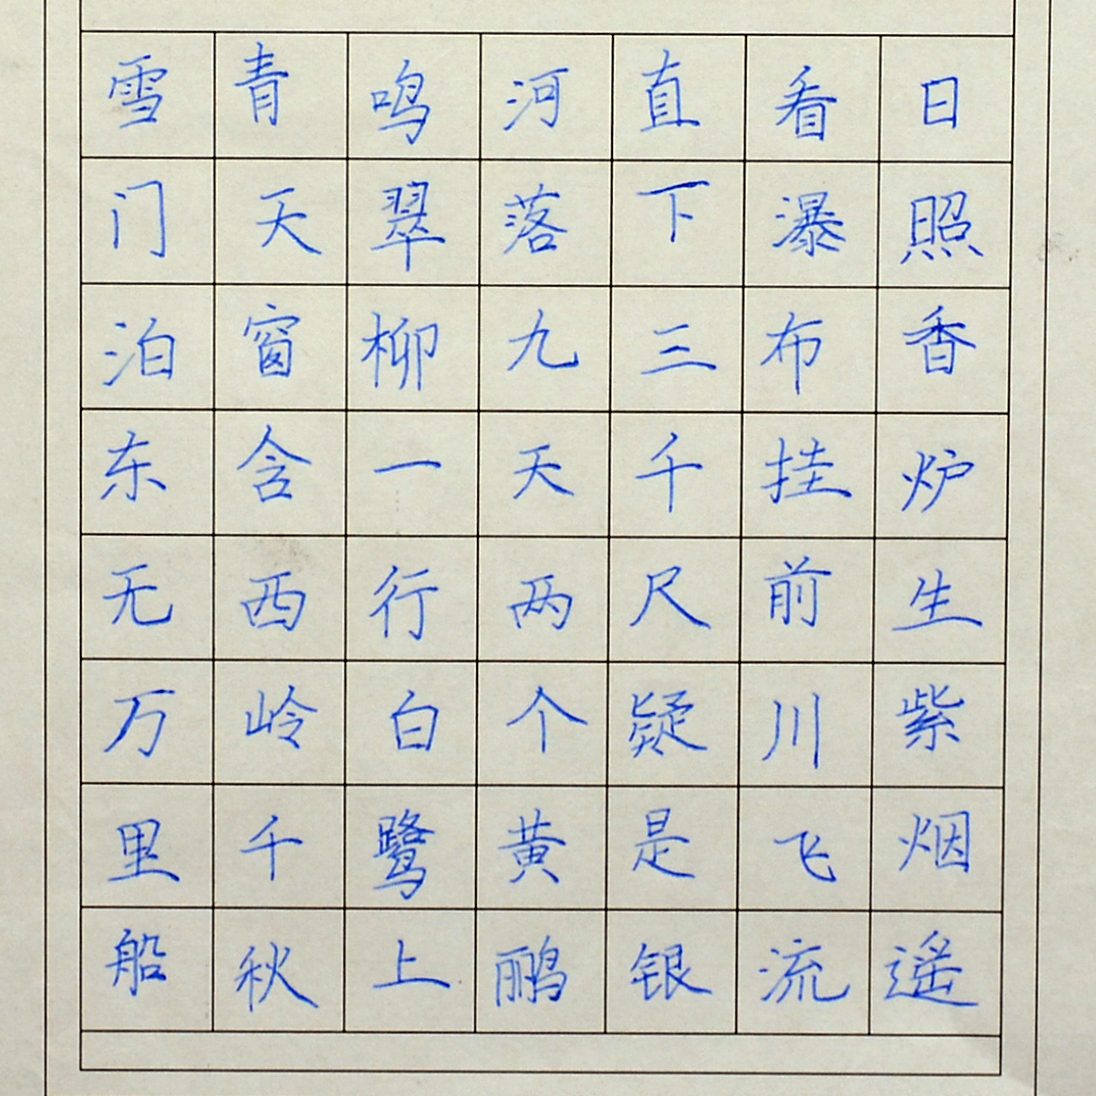 日照香炉生紫烟遥
看瀑布挂前川飞流
直下三千尺疑是银
河落九天两个黄鹂
鸣翠柳一行白鹭上
青天窗含西岭千秋
雪门泊东无万里船